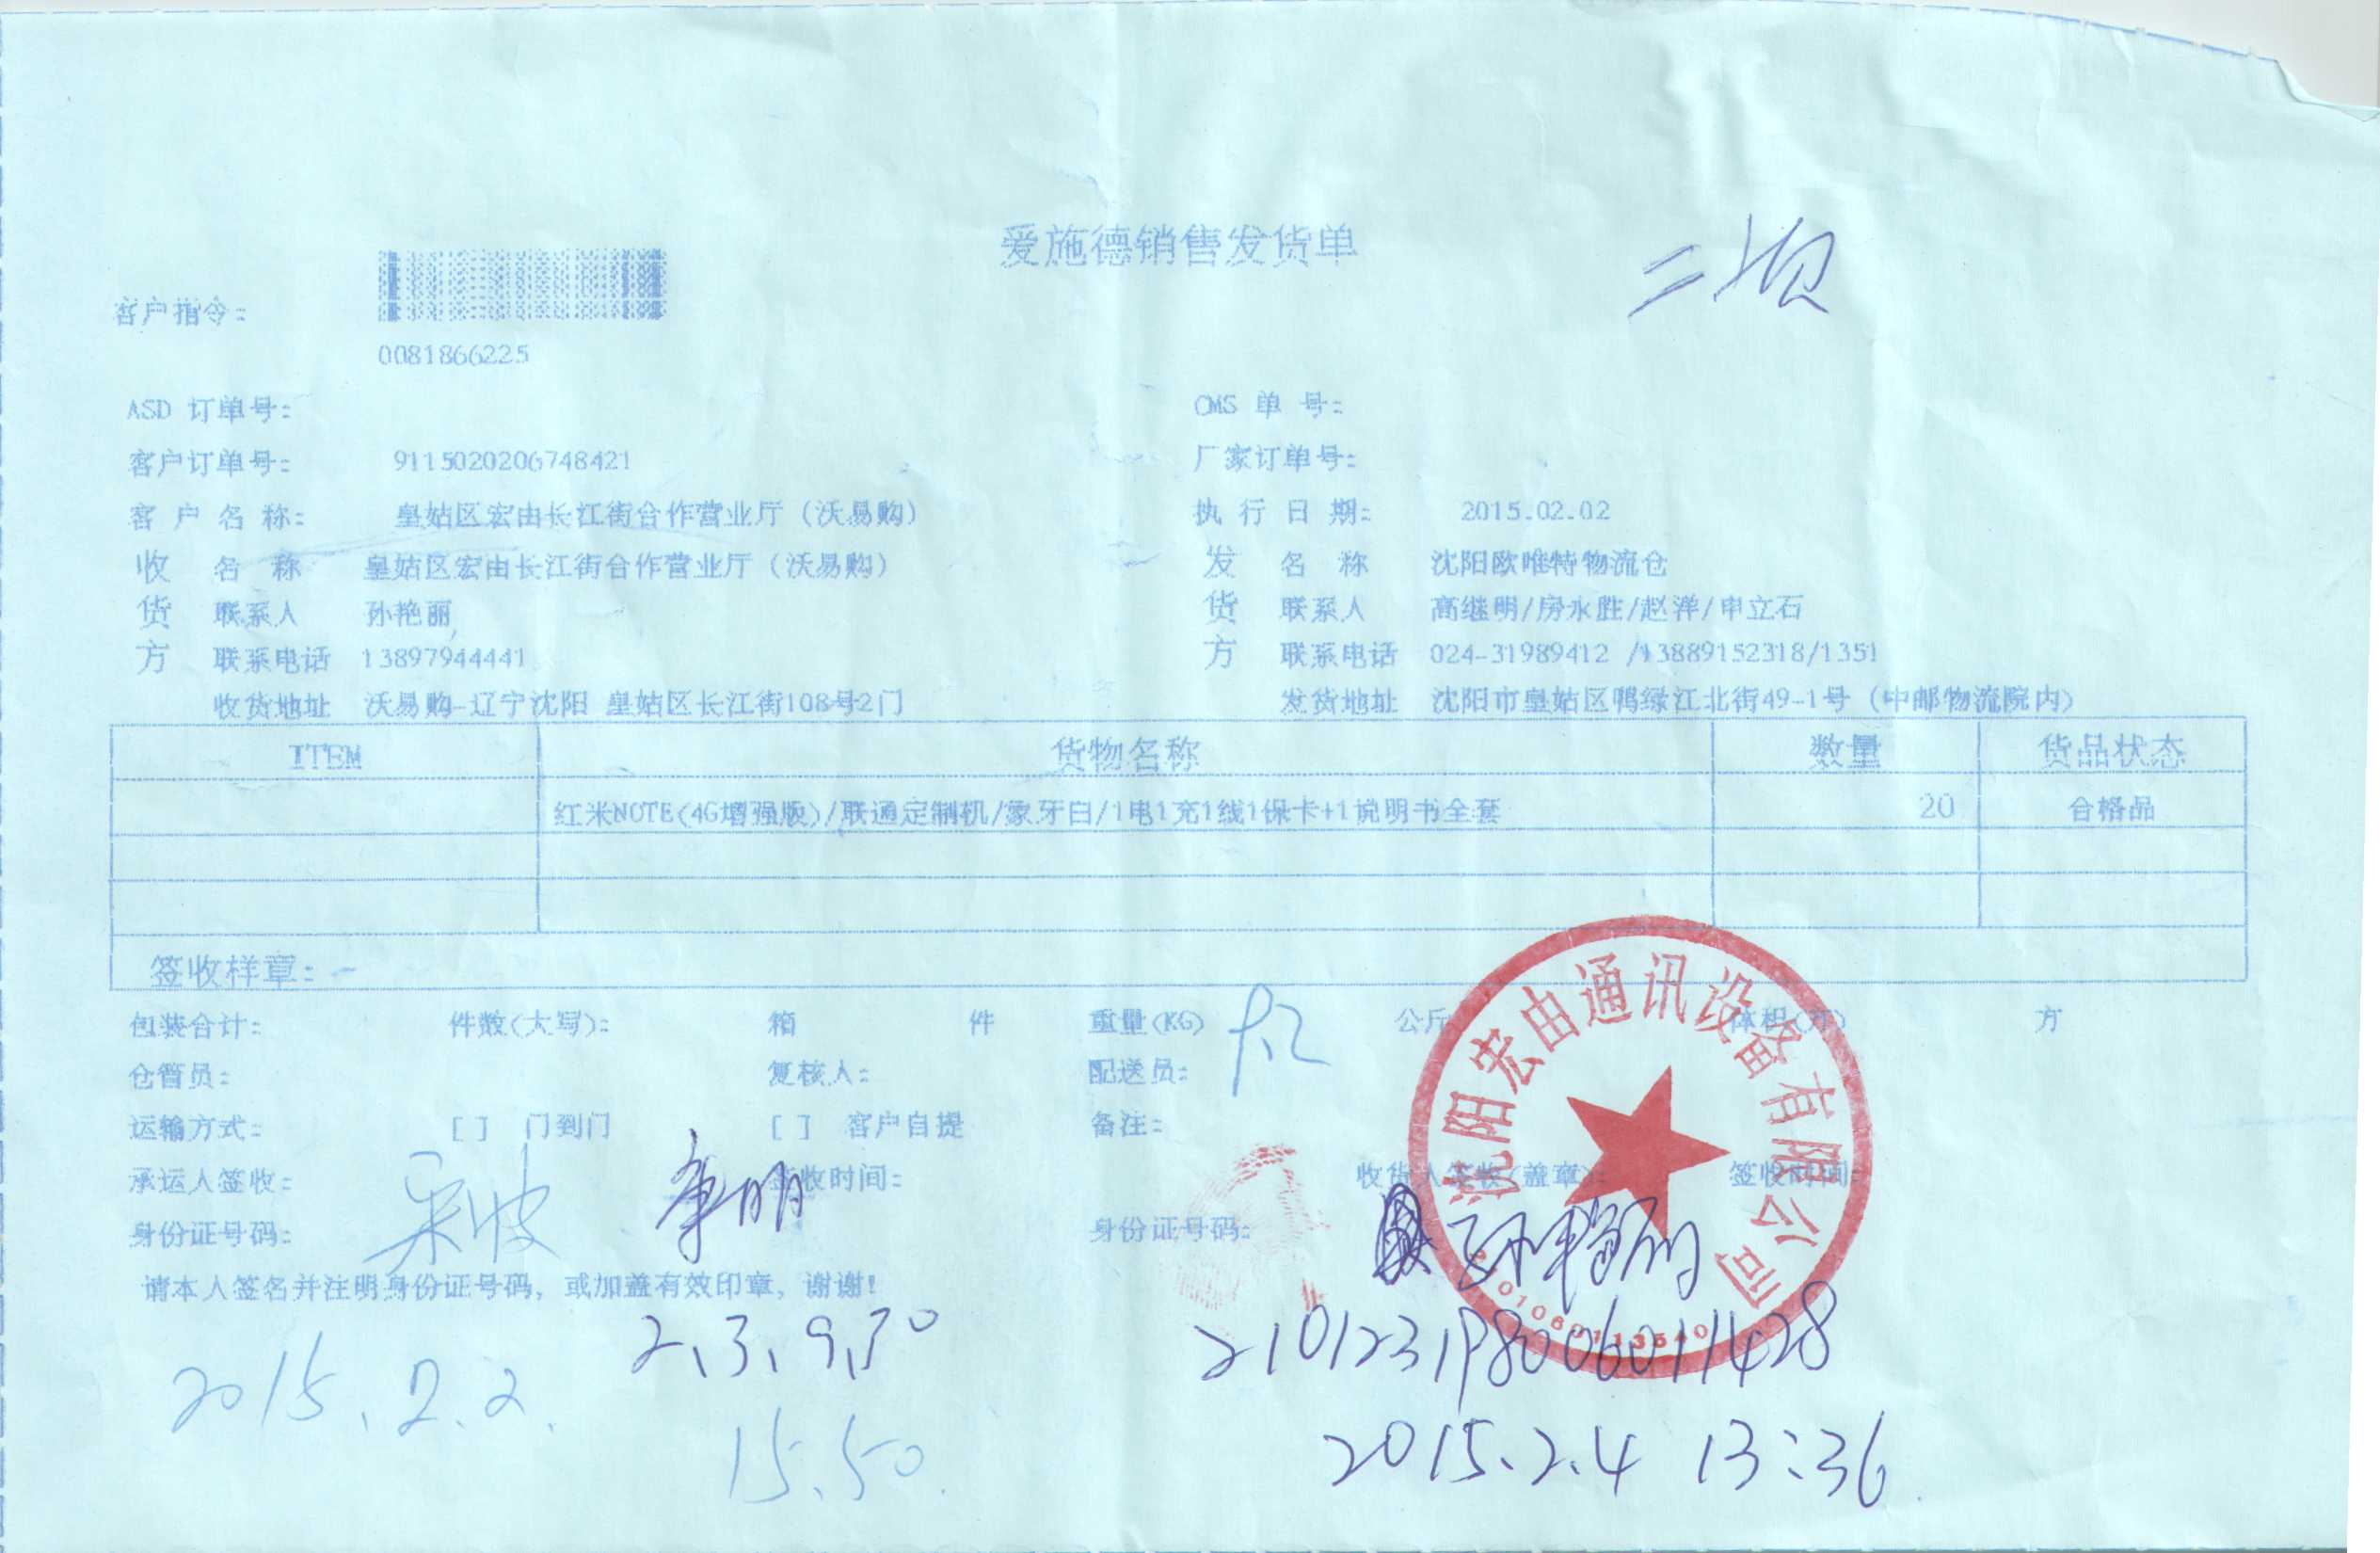 爱施德销售发货单
客户指令:
0081866225
ASD 订单号: OMS 单 号:
客户订单号: 9115020206748421 厂家订单号:
客 户 名 称: 皇姑区宏由长江街合作营业厅（沃易购） 执 行 日 期: 2015.02.02
收 名 称 皇姑区宏由长江街合作营业厅（沃易购） 发 名 称 沈阳欧唯特物流仓
货 联系人 孙艳丽 货 联系人 高继明/房永胜/赵洋/申立石
方 联系电话 13897944441 方 联系电话 024-31989412 /13889152318/1351
收货地址 沃易购-辽宁沈阳 皇姑区长江街108号2门 发货地址 沈阳市皇姑区鸭绿江北街49-1号（中邮物流院内）
ITEM 货物名称 数量 货品状态
红米NOTE(4G增强版)/联通定制机/象牙白/1电1充1线1保卡+1说明书全套 20 合格品
签收样章:
包装合计: 件数(大写): 箱 件 重量(KG) 公斤 体积(方) 方
仓管员: 复核人: 配送员:
运输方式: [ ] 门到门 [ ] 客户自提 备注:
承运人签收: 签收时间: 收货人签收(盖章): 签收时间:
身份证号码: 身份证号码: 孙艳丽
请本人签名并注明身份证号码，或加盖有效印章，谢谢!
2.3.9.30 210123198006011428
2015.2.2. 15.50. 2015.2.4 13:36
沈阳宏由通讯设备有限公司